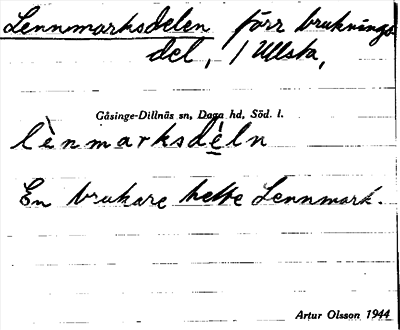 Lennmarksdelen förr bruknings
del, i Ullsta,
Gåsinge-Dillnäs sn, Daga hd, Söd. l.
lènmarksdèln
En brukare hette Lennmark.
Artur Olsson 1944